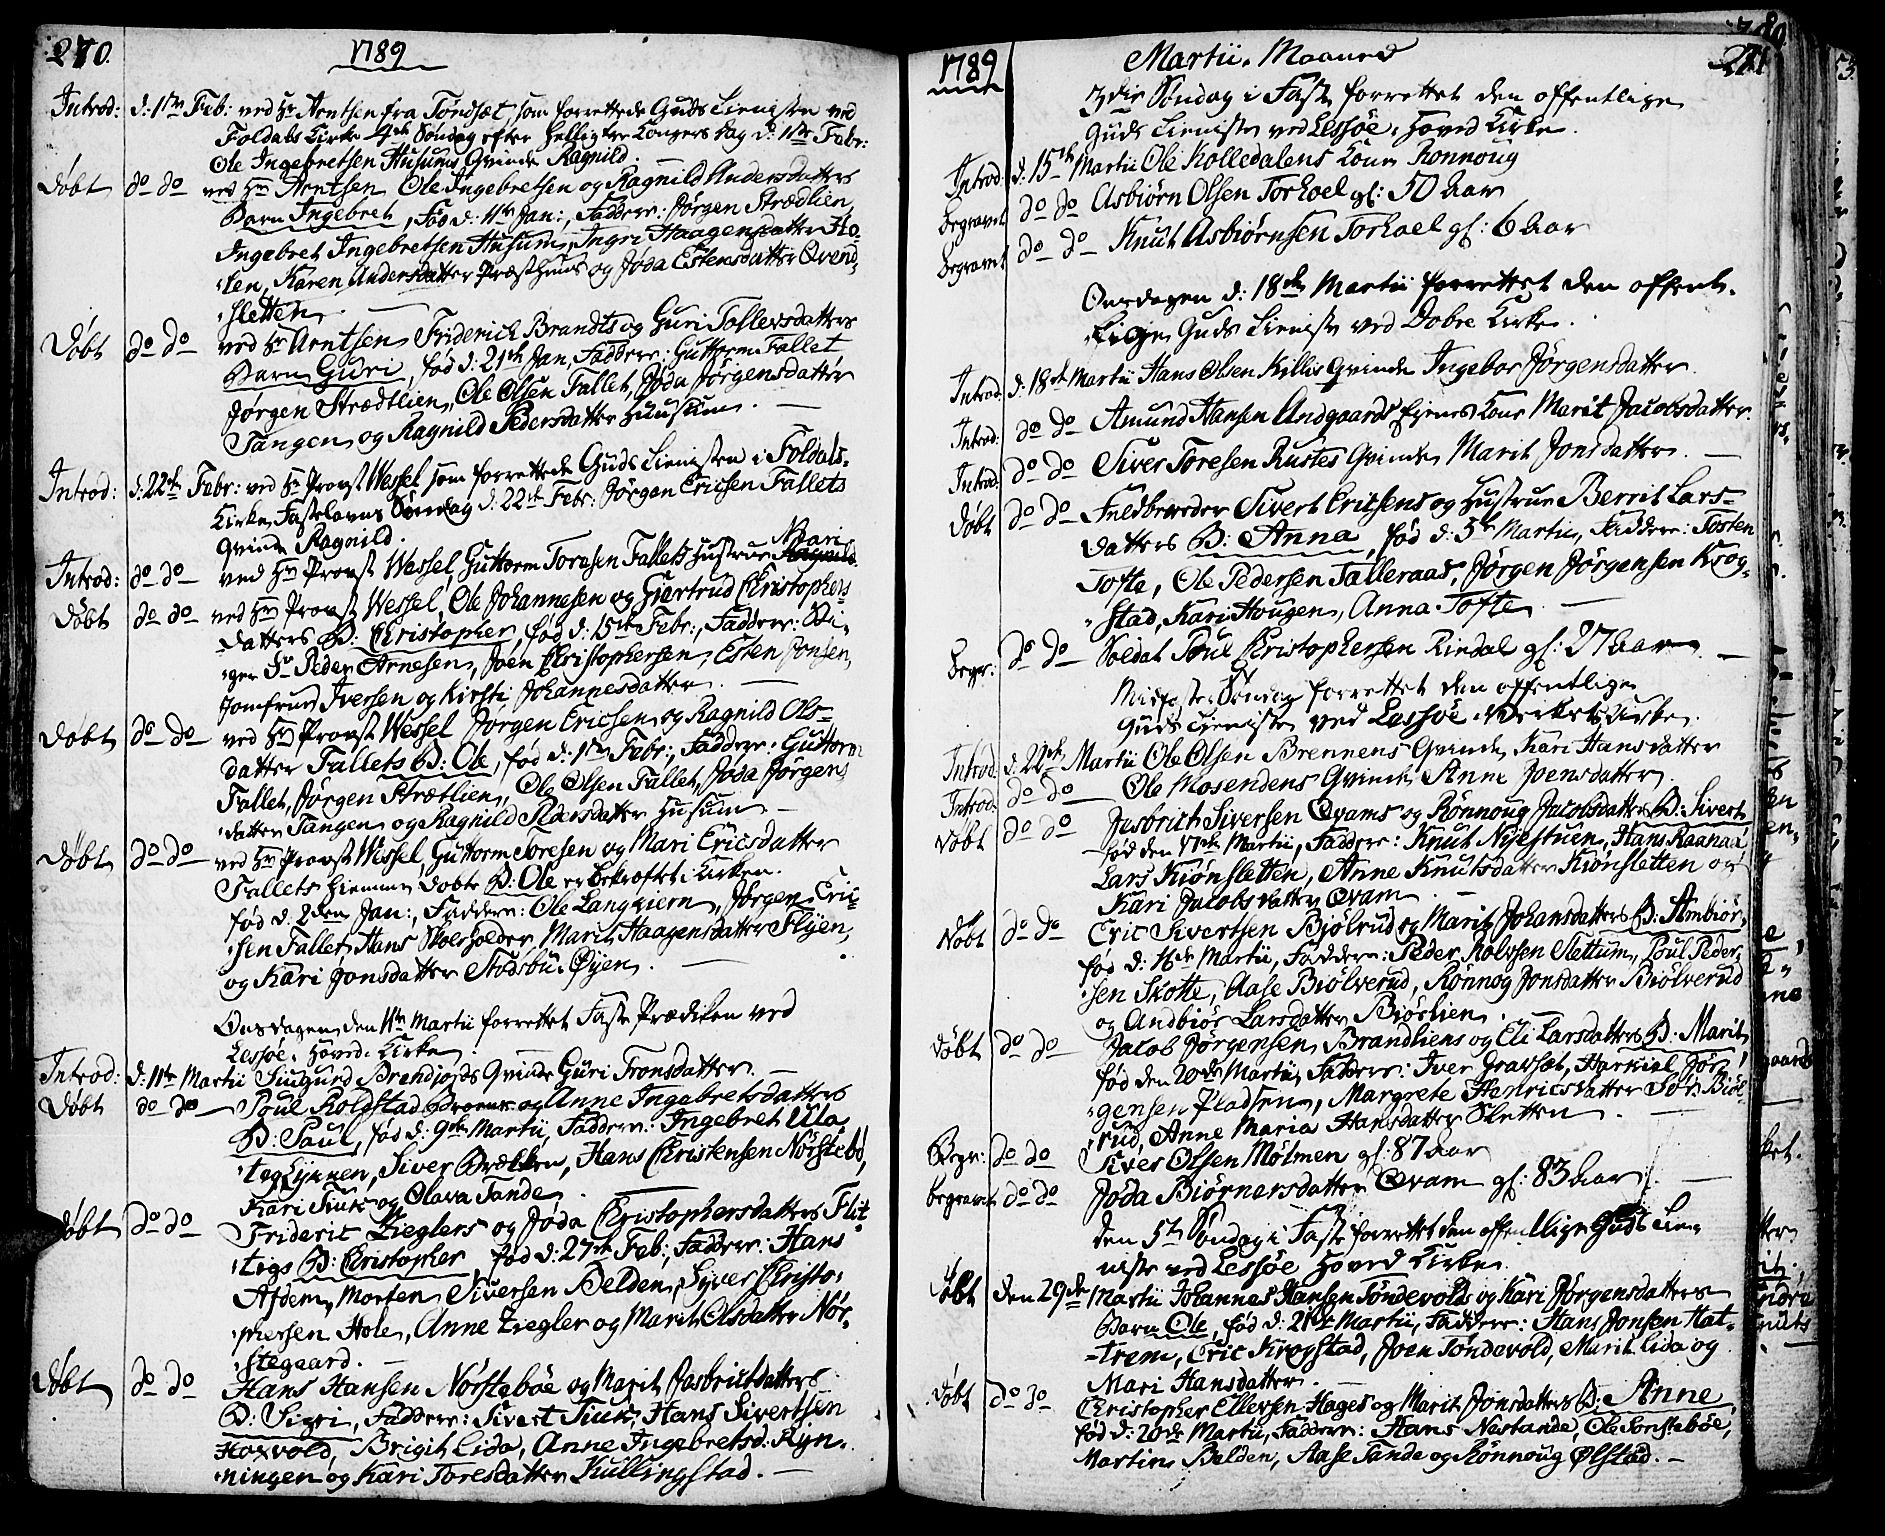 270.
1789
Introd: d: 1ste Feb: ved Hr Arntsen fra Tøndset, som forrettede Guds Tieniste ved
Foldals Kirke 4de Søndag efter Hellig tre Kongers Dag d: 1ste Febr:
Ole Ingebretsen Husums Qvinde Ragnild.
Døbt do do ved Hr Arntsen Ole Ingebretsen og Ragnild Andersdatters
Barn Ingebret, fød d: 11te Jan:, Faddere: Jørgen Strædlien,
Ingebret Ingebretsen Husum, Ingri Haagensdatter Ho-
-ten, Karen Andersdatter Præsthuus og Jøda Estensdatter Qvend-
-sletten
Døbt do do ved Hr Arntsen Friderich Brandts og Guri Tollevsdatters
Barn Guri, fød d: 21de Jan, Faddere: Guttorm Fallet
Jørgen Strædtlien, Ole Olsen Fallet, Jøda Jørgensdatter
Tangen og Ragnild Pedersdatter Huusum.
Introd: d: 22de Febr: ved Hr Provst Wessel som forrettede Guds Tienisten i Foldals-
Kirke, Fastelavns Søndag d: 22de Febr: Jørgen Ericsen Fallets
Qvinde Ragnild.
Mari
Introd: do do ved Hr Provst Wessel, Guttorm Toresen Fallets Hustrue Ragnild
Døbt do do ved Hr Provst Wessel, Ole Johannesen og Giertrud Christophers-
datters B: Christopher, fød d: 15de Febr:, Faddere: Sti-
-ger Sr Peder Arnesen, Joen Christophersen, Esten Jonsen,
Jomfrue Iversen og Kirsti Johannesdatter.
Døbt do do ved Hr Provst Wessel Jørgen Ericsen og Ragnild Ols-
datter Fallets B: Ole, fød d: 1ste Febr:, Faddere: Guttorm
Fallet, Jørgen Strætlien, Ole Olsen Fallet, Jøda Jørgens
-datter Tangen og Ragnild Pedersdatter Husum
Døbt do do ved Hr Provst Wessel, Guttorm Toresen og Mari Ericsdatter
Fallets hiemme døbte B: Ole er bekræftet i Kirken.
fød d: 2den Jan:, Faddere: Ole Langtiern, Jørgen Eric-
-sen Fallet, Hans Skoleholder, Marit Haagensdatter Flyen,
og Kari Jonsdatter Stødsbu-Øyen.
Onsdagen den 11te Martii forrettet Faste Prædiken ved
Lessøe Hoved-Kirke
Introd: d: 11te Martii Siugurd Brendjords Qvinde Guri Tronsdatter.
Døbt do do Poul Kolstad Broens og Anne Ingebretsdatters
B: Paul, fød d: 9de Martii, Faddere: Ingebret Ula,
-teglynnen, Siver Brækken, Hans Christensen Nørstebø,
Kari Siuk og Olava Tande
Døbt do do Frideric Zieglers og Jøda Christophersdatters Flit-
-tegs B: Christopher, fød d: 27de Feb:, Faddere: Hans
Afdem, Morten Siversen Belden, Syver Christo-
-phersen Hole, Anne Ziegler og Marit Olsdatter Nør-
-stegaard.
Døbt do do Hans Hansen Nørstebøe og Marit Jasbrictdatters
B: Sigri, Faddere: Sivert Siuk, Hans Sivertsen
Horvold, Brigit Lida, Anne Ingebretsd: Ryn-
-ningen og Kari Toresdatter Kullingstad.
1789 Martii Maaned 271
3die Søndag i Faste forrettet den offentlige
Guds Tieniste ved Lessøe Hoved Kirke.
Introd: d: 15de Martii Ole Kolledalens Kone Rønnoug
Begravet do do Asbiørn Olsen Torhoel gl: 50 Aar
Begravet do do Knut Asbiørnsen Torhoel gl: 6 Aar
Onsdagen d: 18de Martii forrettet den offent-
-lige Guds Tieniste ved Dobre Kirke.
Introd: d: 18de Martii Hans Olsen Killis Qvinde Ingebor Jørgensdatter.
Introd: do do Amund Hansen Andgaards Ejens Kone Marit Jacobsdatter
Introd: do do Siver Toresen Rustes Qvinde Marit Jonsdatter.
Døbt do do Feldbereder Sivert Ericsens og Hustrue Berrit Lars-
datters B: Anna, fød d: 5te Martii, Faddere: Tosten
Tofte, Ole Pedersen Talleraas, Jørgen Jørgensen Krog-
-stad, Kari Hougen, Anna Tofte
Begr: do do Soldat Poul Christophersen Rindal gl: 27 Aar
Midfaste Søndag forrettet den offentlige
Guds Tieniste ved Lessøe-Verkets Kirke.
Introd: d: 22de Martii Ole Olsen Brennens Qvinde Kari Hansdatter
Introd do do Ole Mosendens Qvinde Anne Joensdatter.
Døbt do do Jasbrict Siversen Qvams og Rønnoug Jacobsdatters B: Sivert
fød den 11te Martii, Faddere: Knut Nyestuen, Hans Raanaa
Lars Kiønsletten, Anne Knutsdatter Kiønsletten og
Kari Jacobsdatter Qvam
Døbt do do Eric Sivertsen Bjølrud og Marit Johansdatters B: Ambiør,
fød d: 16de Martii, Faddere: Peder Rolvsen Slettum, Poul Peder-
-sen Skotte, Aase Biølverud, Rønnog Jonsdatter Biølverud
og Andbiør Larsdatter Biørlien
Døbt do do Jacob Jørgensen Brandliens og Eli Larsdatters B: Marit,
fød den 20de Martii, Faddere: Iver Gravset, Hartvial Jør-
-gensen Pladsen, Margrete Henricsdatter Sør Biøl-
-rud, Anne Maria Hansdatter Sletten.
Begr: do do Siver Olsen Mølmen gl: 87 Aar
Begravet do do Jøda Biørnersdatter Qvam gl: 83 Aar.
Den 5te Søndag i Faste forrettet den offentlige Guds Tie-
niste ved Lessøe Hoved Kirke.
Døbt den 29de Martii Johannes Hansen Tøndevolds og Kari Jørgensdatters
Barn Ole, fød d: 21de Martii, Faddere: Hans Jonsen Hat-
-trem, Eric Krogstad, Joen Tøndevold, Marit Lida og
Mari Hansdatter
Døbt do do Christopher Ellevsen Hages og Marit Jonsdatters B: Anne,
fød d: 20de Martii, Faddere: Hans Nestande, Ole Torstebøe,
Martin Belden, Aase Tande og Rønnoug Ølstad.